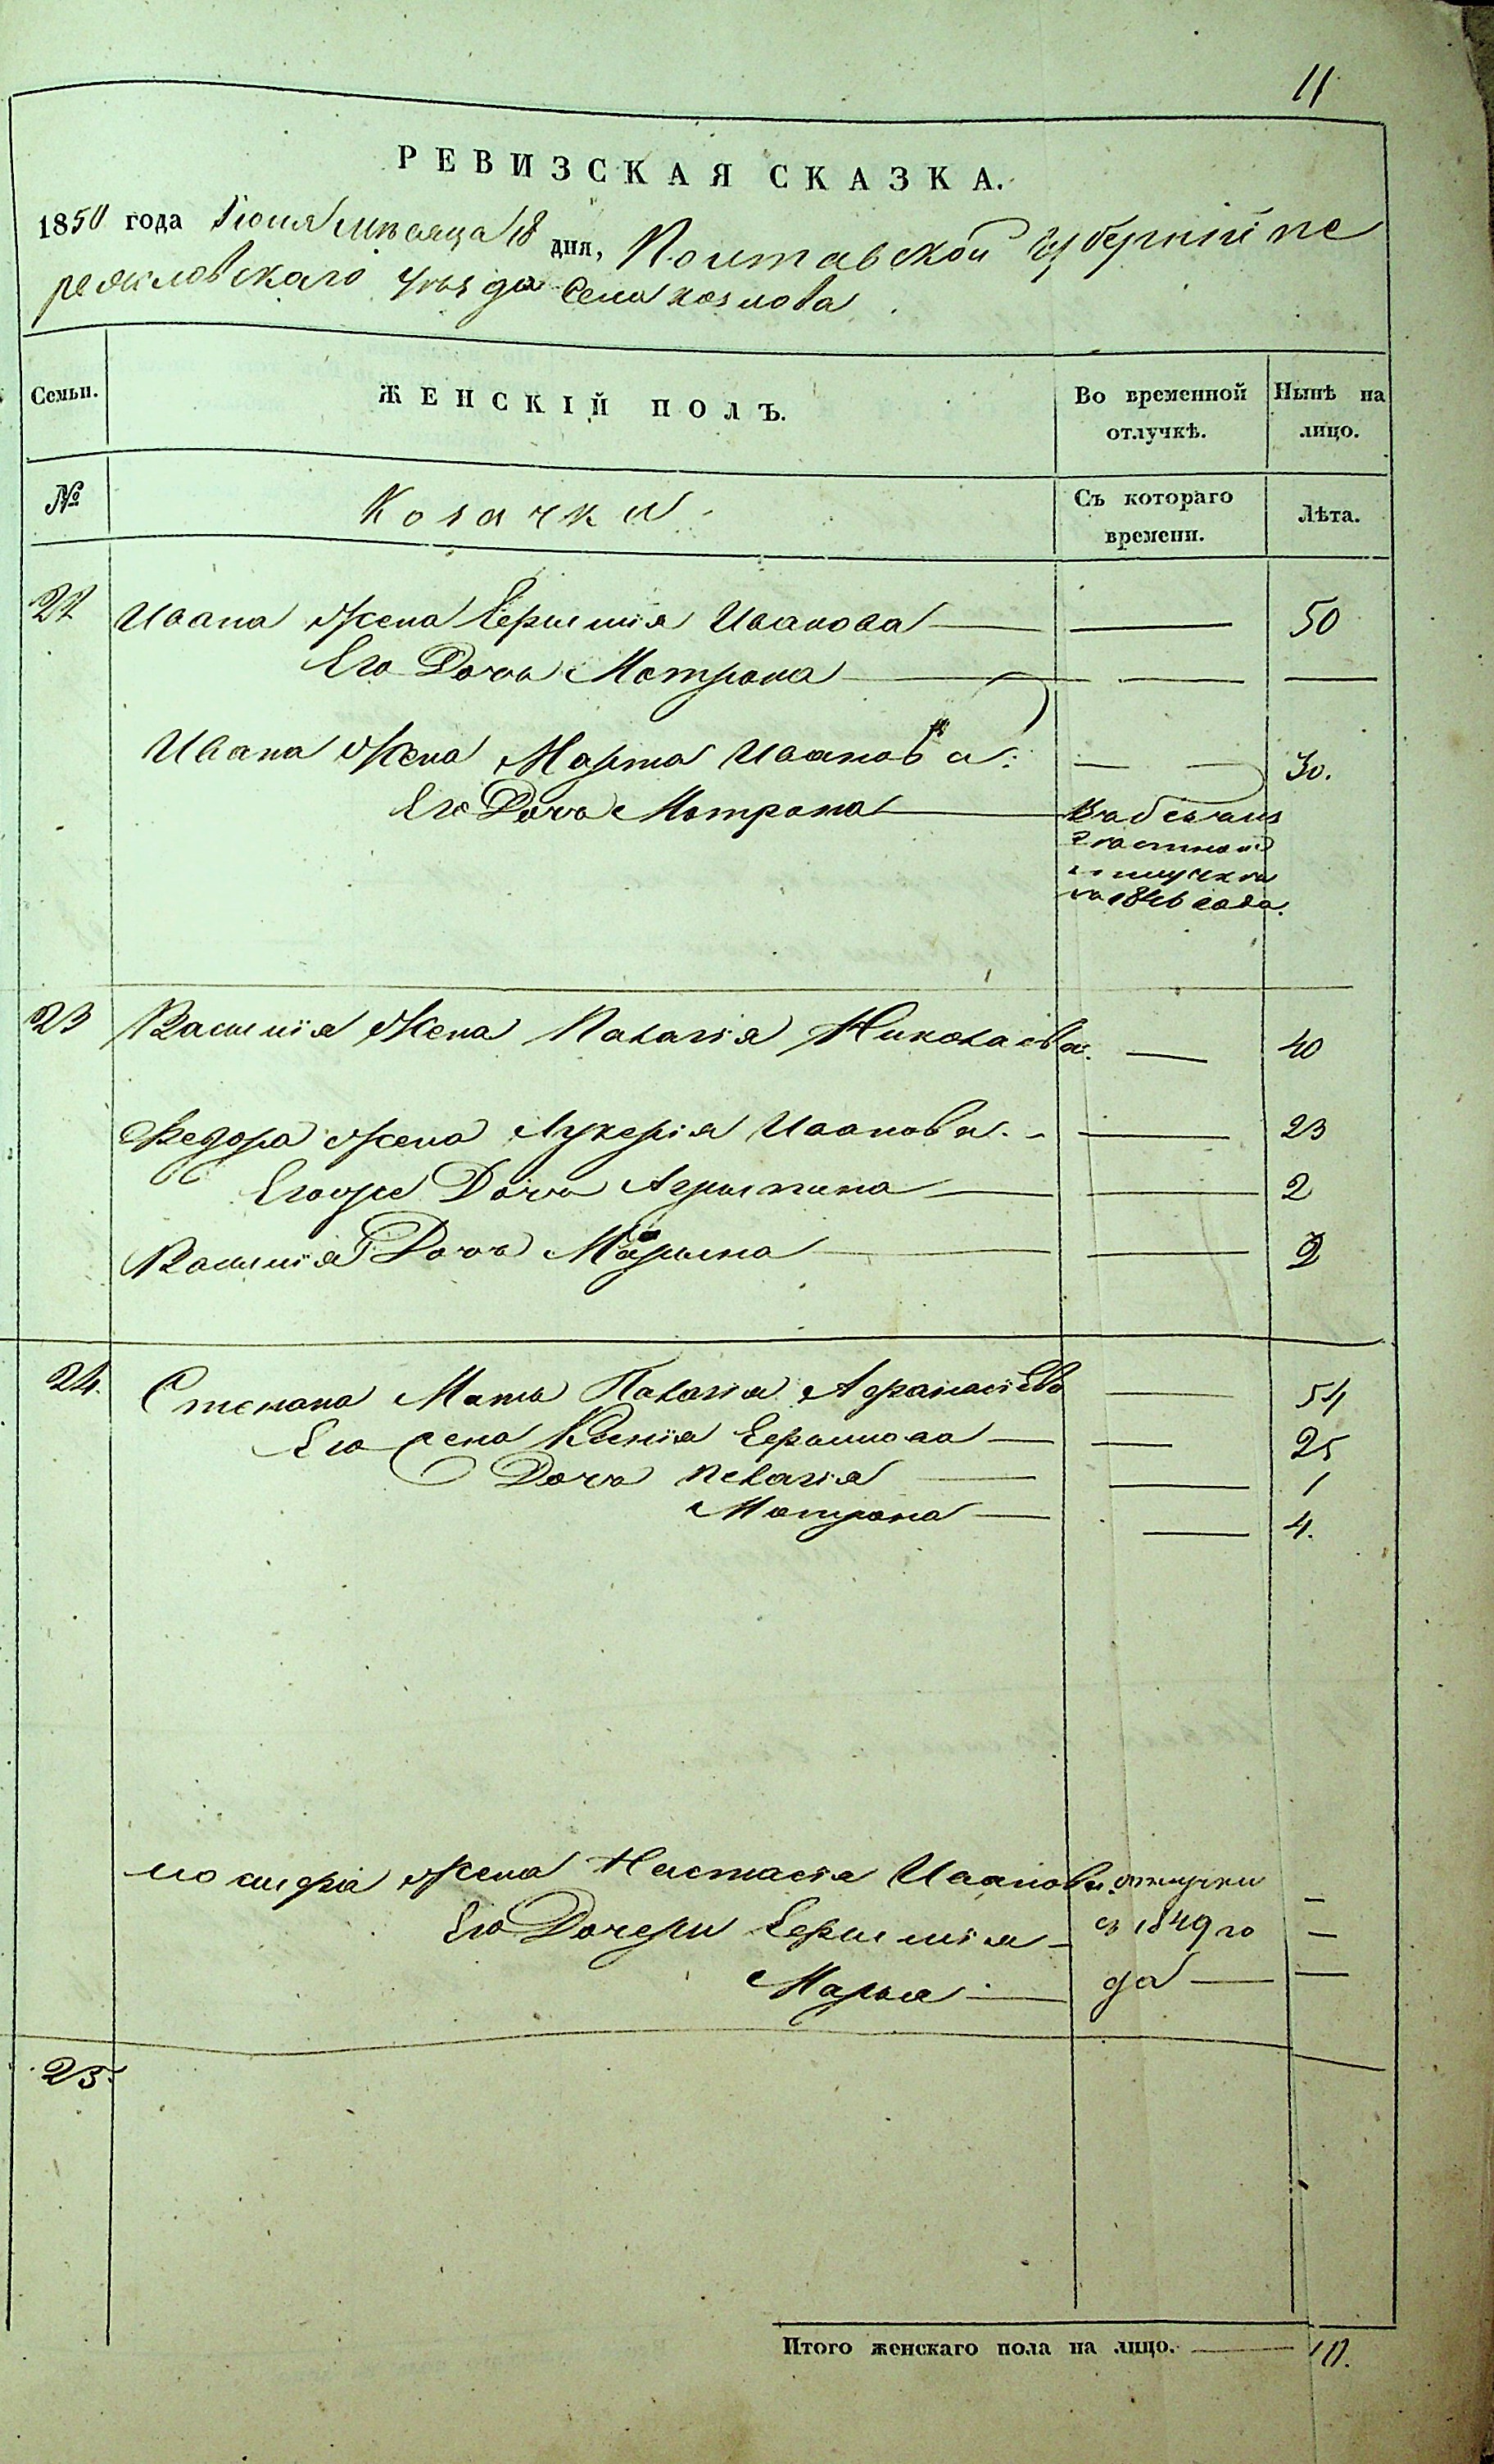 11
РЕВИЗСКАЯ СКАЗКА.
1850 года Июня мѣсяца 18 дня, Полтавской Губерніи пе
реяславскаго уѣзда Села козлова
Семьи.
ЖЕНСКІЙ ПОЛЪ.
Во временной отлучкѣ.
Нынѣ на лицо.
№
Козачки
Съ котораго времени.
Лѣта.
22 Ивана Жена Ефимія Иванова — — 50
Его Дочь Мотрона — — —
Ивана Жена Марта Иванова — — 30.
Его Дочь Мотрона —
отлучки
1846 года.
23 Василія Жена Палагія Николаева — 40
Федора Жена Лукерія Иванова — 23
Егоже Дочь Агрипина — — 2
Василія Дочь Марина — — 2
24. Степана Мать Палагія Афанасіева — 54
Его Жена Ксенія Ефимова — — 25
Дочь пелагія — — 1
Мотрона — — 4.
иосифа Жена Настасія Иванова отлучки —
Его Дочери Ефимія — съ 1849 го —
Марья — да — —
25.
Итого женскаго пола на лицо. — 10.